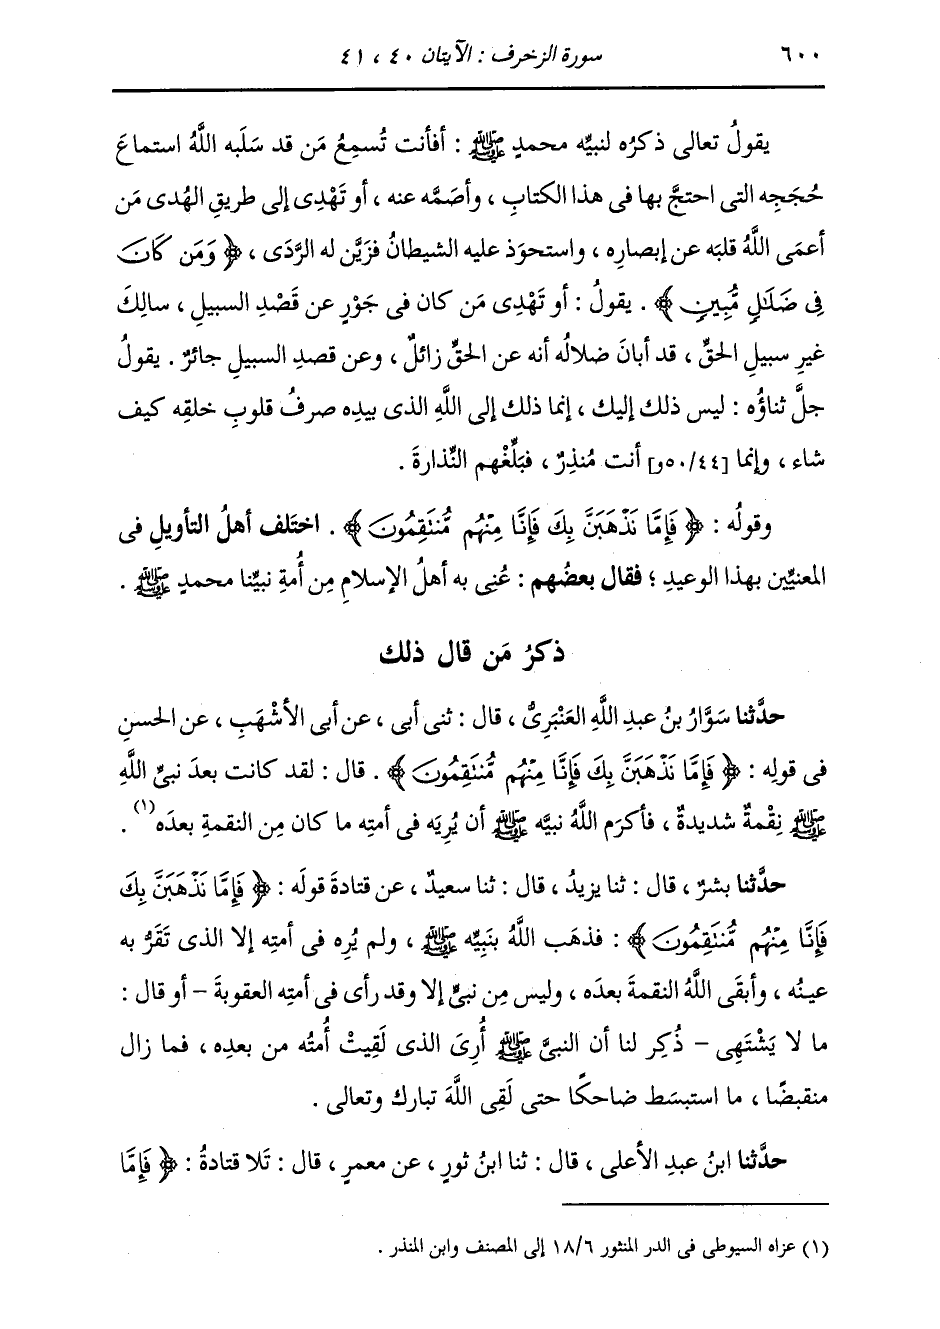 ٦٠٠ سورة الزخرف : الآيتان ٤٠ ، ٤١
يقولُ تعالى ذكرُه لنبيِّه محمدٍ ﷺ : أفأنت تُسمِعُ مَن قد سَلَبه اللَّهُ استماعَ
حُجَجِه التى احتجَّ بها فى هذا الكتابِ ، وأصَمَّه عنه ، أو تَهْدِى إلى طريقِ الهُدى مَن
أعمَى اللَّهُ قلبَه عن إبصارِه ، واستحوَذ عليه الشيطانُ فزَيَّن له الرَّدَى ، ﴿ وَمَن كَانَ
فِى ضَلَٰلٍ مُّبِينٍ ﴾ . يقولُ : أو تَهْدِى مَن كان فى جَوْرٍ عن قَصْدِ السبيلِ ، سالِكَ
غيرِ سبيلِ الحقِّ ، قد أبانَ ضلالُه أنه عن الحقِّ زائلٌ ، وعن قصدِ السبيلِ جائرٌ . يقولُ
جلَّ ثناؤُه : ليس ذلك إليك ، إنما ذلك إلى اللَّهِ الذى بيدِه صرفُ قلوبِ خلقِه كيف
شاء ، وإنما [٥٠/٤٤و] أنت مُنذِرٌ ، فبَلِّغْهم النِّذارةَ .
وقولُه : ﴿ فَإِمَّا نَذْهَبَنَّ بِكَ فَإِنَّا مِنْهُم مُّنتَقِمُونَ ﴾ . اختَلف أهلُ التأويلِ فى
المعنيِّين بهذا الوعيدِ ؛ فقال بعضُهم : عُنِى به أهلُ الإسلامِ مِن أُمةِ نبيِّنا محمدٍ ﷺ .
ذكرُ مَن قال ذلك
حدَّثنا سَوَّارُ بنُ عبدِ اللَّهِ العَنْبَرِىُّ ، قال : ثنى أبى ، عن أبى الأشْهَبِ ، عن الحسنِ
فى قولِه : ﴿ فَإِمَّا نَذْهَبَنَّ بِكَ فَإِنَّا مِنْهُم مُّنتَقِمُونَ ﴾ . قال : لقد كانت بعدَ نبىِّ اللَّهِ
ﷺ نِقْمةٌ شديدةٌ ، فأكرَم اللَّهُ نبيَّه ﷺ أن يُرِيَه فى أمتِه ما كان مِن النقمةِ بعدَه(١) .
حدَّثنا بشرٌ ، قال : ثنا يزيدُ ، قال : ثنا سعيدٌ ، عن قتادةَ قولَه : ﴿ فَإِمَّا نَذْهَبَنَّ بِكَ
فَإِنَّا مِنْهُم مُّنتَقِمُونَ ﴾ : فذهَب اللَّهُ بنَبِيِّه ﷺ ، ولم يُرِه فى أمتِه إلا الذى تَقَرُّ به
عينُه ، وأبقَى اللَّهُ النقمةَ بعدَه ، وليس مِن نبىٍّ إلا وقد رأى فى أمتِه العقوبةَ – أو قال :
ما لا يَشْتَهِى – ذُكِر لنا أن النبىَّ ﷺ أُرِىَ الذى لَقِيتْ أُمتُه من بعدِه ، فما زال
منقبضًا ، ما استبسَط ضاحكًا حتى لَقِى اللَّهَ تبارك وتعالى .
حدَّثنا ابنُ عبدِ الأعلى ، قال : ثنا ابنُ ثورٍ ، عن معمرٍ ، قال : تَلا قتادةُ : ﴿ فَإِمَّا
(١) عزاه السيوطى فى الدر المنثور ١٨/٦ إلى المصنف وابن المنذر .